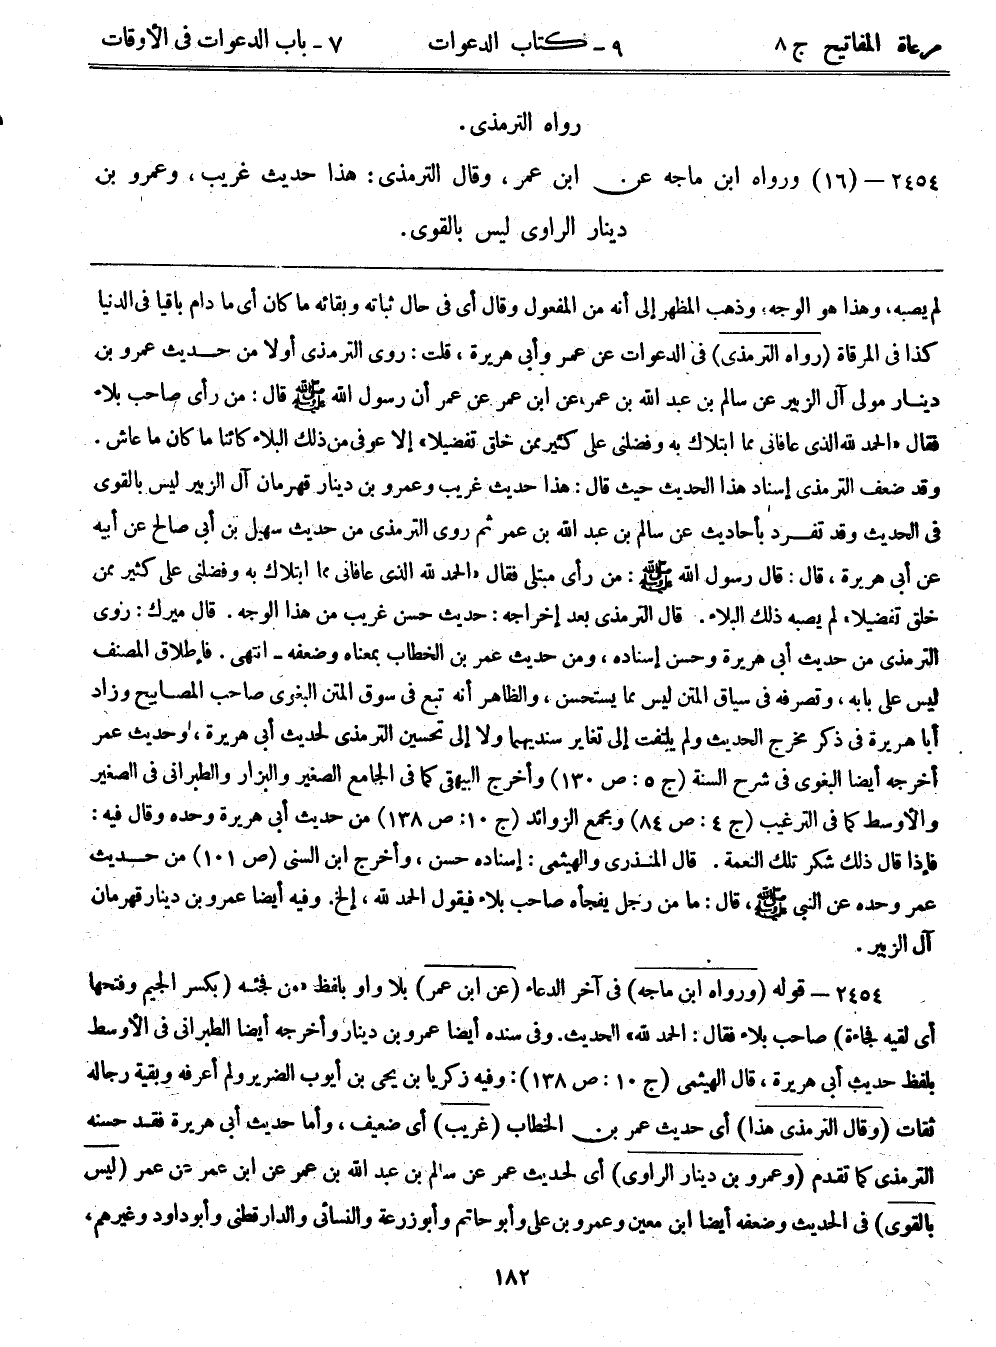 مرعاة المفاتيح ج ٨ ٩ - كتاب الدعوات ٧ - باب الدعوات فى الأوقات
رواه الترمذى .
٢٤٥٤ – (١٦) ورواه ابن ماجه عن ابن عمر ، وقال الترمذى : هذا حديث غريب ، وعمرو بن
دينار الراوى ليس بالقوى .
لم يصبه ، وهذا هو الوجه ، وذهب المظهر إلى أنه من المفعول وقال أى فى حال ثباته وبقائه ما كان أى ما دام باقيا فى الدنيا
كذا فى المرقاة (رواه الترمذى) فى الدعوات عن عمر وأبى هريرة ، قلت : روى الترمذى أولا من حديث عمرو بن
دينار مولى آل الزبير عن سالم بن عبد الله بن عمر ، عن ابن عمر عن عمر أن رسول الله ﷺ قال : من رأى صاحب بلاء
فقال «الحمد لله الذى عافانى مما ابتلاك به وفضلنى على كثير ممن خلق تفضيلا» إلا عوفى من ذلك البلاء كائنا ما كان ما عاش .
وقد ضعف الترمذى إسناد هذا الحديث حيث قال : هذا حديث غريب وعمرو بن دينار قهرمان آل الزبير ليس بالقوى
فى الحديث وقد تفرد بأحاديث عن سالم بن عبد الله بن عمر ثم روى الترمذى من حديث سهيل بن أبى صالح عن أبيه
عن أبى هريرة ، قال : قال رسول الله ﷺ : من رأى مبتلى فقال «الحمد لله الذى عافانى مما ابتلاك به وفضلنى على كثير ممن
خلق تفضيلا» لم يصبه ذلك البلاء . قال الترمذى بعد إخراجه : حديث حسن غريب من هذا الوجه . قال ميرك : روى
الترمذى من حديث أبى هريرة وحسن إسناده ، ومن حديث عمر بن الخطاب بمعناه وضعفه ـ انتهى . فإطلاق المصنف
ليس على بابه ، وتصرفه فى سياق المتن ليس مما يستحسن ، والظاهر أنه تبع فى سوق المتن البغوى صاحب المصابيح وزاد
أبا هريرة فى ذكر مخرج الحديث ولم يلتفت إلى تغاير سنديهما ولا إلى تحسين الترمذى لحديث أبى هريرة ، وحديث عمر
أخرجه أيضا البغوى فى شرح السنة (ج ٥ : ص ١٣٠) وأخرج البيهقى كما فى الجامع الصغير والبزار والطبرانى فى الصغير
والأوسط كما فى الترغيب (ج ٤ : ص ٨٤) ومجمع الزوائد (ج ١٠ : ص ١٣٨) من حديث أبى هريرة وحده وقال فيه :
فإذا قال ذلك شكر تلك النعمة . قال المنذرى والهيثمى : إسناده حسن ، وأخرج ابن السنى (ص ١٠١) من حديث
عمر وحده عن النبى ﷺ ، قال : ما من رجل يفجأه صاحب بلاء فيقول الحمد لله ، إلخ . وفيه أيضا عمرو بن دينار قهرمان
آل الزبير .
٢٤٥٤ – قوله (ورواه ابن ماجه) فى آخر الدعاء (عن ابن عمر) بلا واو بلفظ «من فجئه (بكسر الجيم وفتحها
أى لقيه فجاءة) صاحب بلاء فقال : الحمد لله» الحديث . وفى سنده أيضا عمرو بن دينار وأخرجه أيضا الطبرانى فى الأوسط
بلفظ حديث أبى هريرة ، قال الهيثمى (ج ١٠ : ص ١٣٨) : وفيه زكريا بن يحيى بن أيوب الضرير ولم أعرفه وبقية رجاله
ثقات (وقال الترمذى هذا) أى حديث عمر بن الخطاب (غريب) أى ضعيف ، وأما حديث أبى هريرة فقد حسنه
الترمذى كما تقدم (وعمرو بن دينار الراوى) أى لحديث عمر عن سالم بن عبد الله بن عمر عن ابن عمر عن عمر (ليس
بالقوى) فى الحديث وضعفه أيضا ابن معين وعمرو بن على وأبو حاتم وأبو زرعة والنسائى والدارقطنى وأبو داود وغيرهم ،
١٨٢